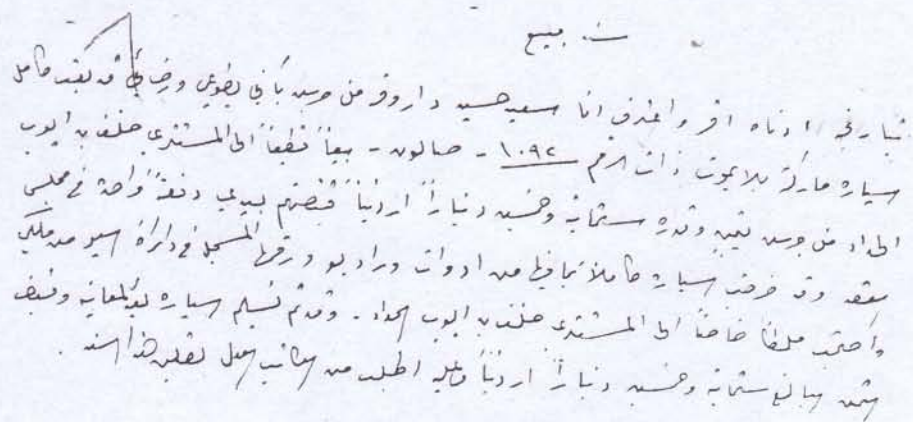 سند بيع
بتاريخه ادناه اقر واعترف انا سعيد حسين داروقه من جرش بأني بطوعي ورضائي قد بعت كامل
سيارة ماركة بلايموث ذات الرقم ١٠٩٢ - صالون - بيعاً قطعياً الى المشتري خلف ايوب
الحداد من جرش بثمن وقدره ستمائة وخمسين ديناراً اردنياً قبضتهم بيدي دفعة واحدة في مجلس
العقد وقد خرجت السيارة كاملة بما فيها من ادوات وراديو ورقمها المسجل في دائرة السير من ملكي
واصبحت ملكاً خاصاً الى المشتري خلف ايوب الحداد - وقد تم تسليم السيارة بعد المعاينة وقبض
ثمن البالغ ستمائة وخمسين ديناراً اردنياً وعليه اطلب من الكاتب العدل تصديق هذا السند .